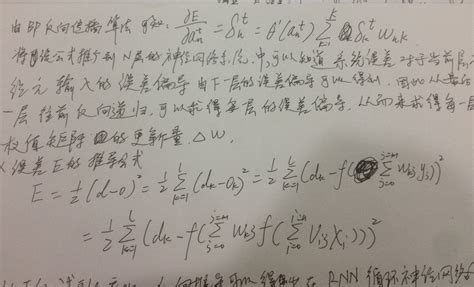 由BP反向传播算法可知, ∂E/∂a_n^t = δ_n^t = θ'(a_n^t) Σ_{k=1}^{k} δ_k^t w_{nk}
将此公式推广到N层的神经网络系统中,可以知道 系统误差对于当前层
经元输入的误差偏导由下一层的误差偏导可以得到. 因而从最后
一层往前反向递归, 可以求得每层的误差偏导, 从而来求得每一层
权值矩阵的更新量 △W.
误差E的推导公式
E = 1/2 (d-o)^2 = 1/2 Σ_{k=1}^{l} (d_k-o_k)^2 = 1/2 Σ_{k=1}^{l} (d_k - f(Σ_{j=0}^{j=m} w_{kj} y_j))^2
= 1/2 Σ_{k=1}^{l} (d_k - f(Σ_{j=0}^{j=m} w_{kj} f(Σ_{i=0}^{i=n} v_{ij} x_i)))^2
RNN 循环神经网络